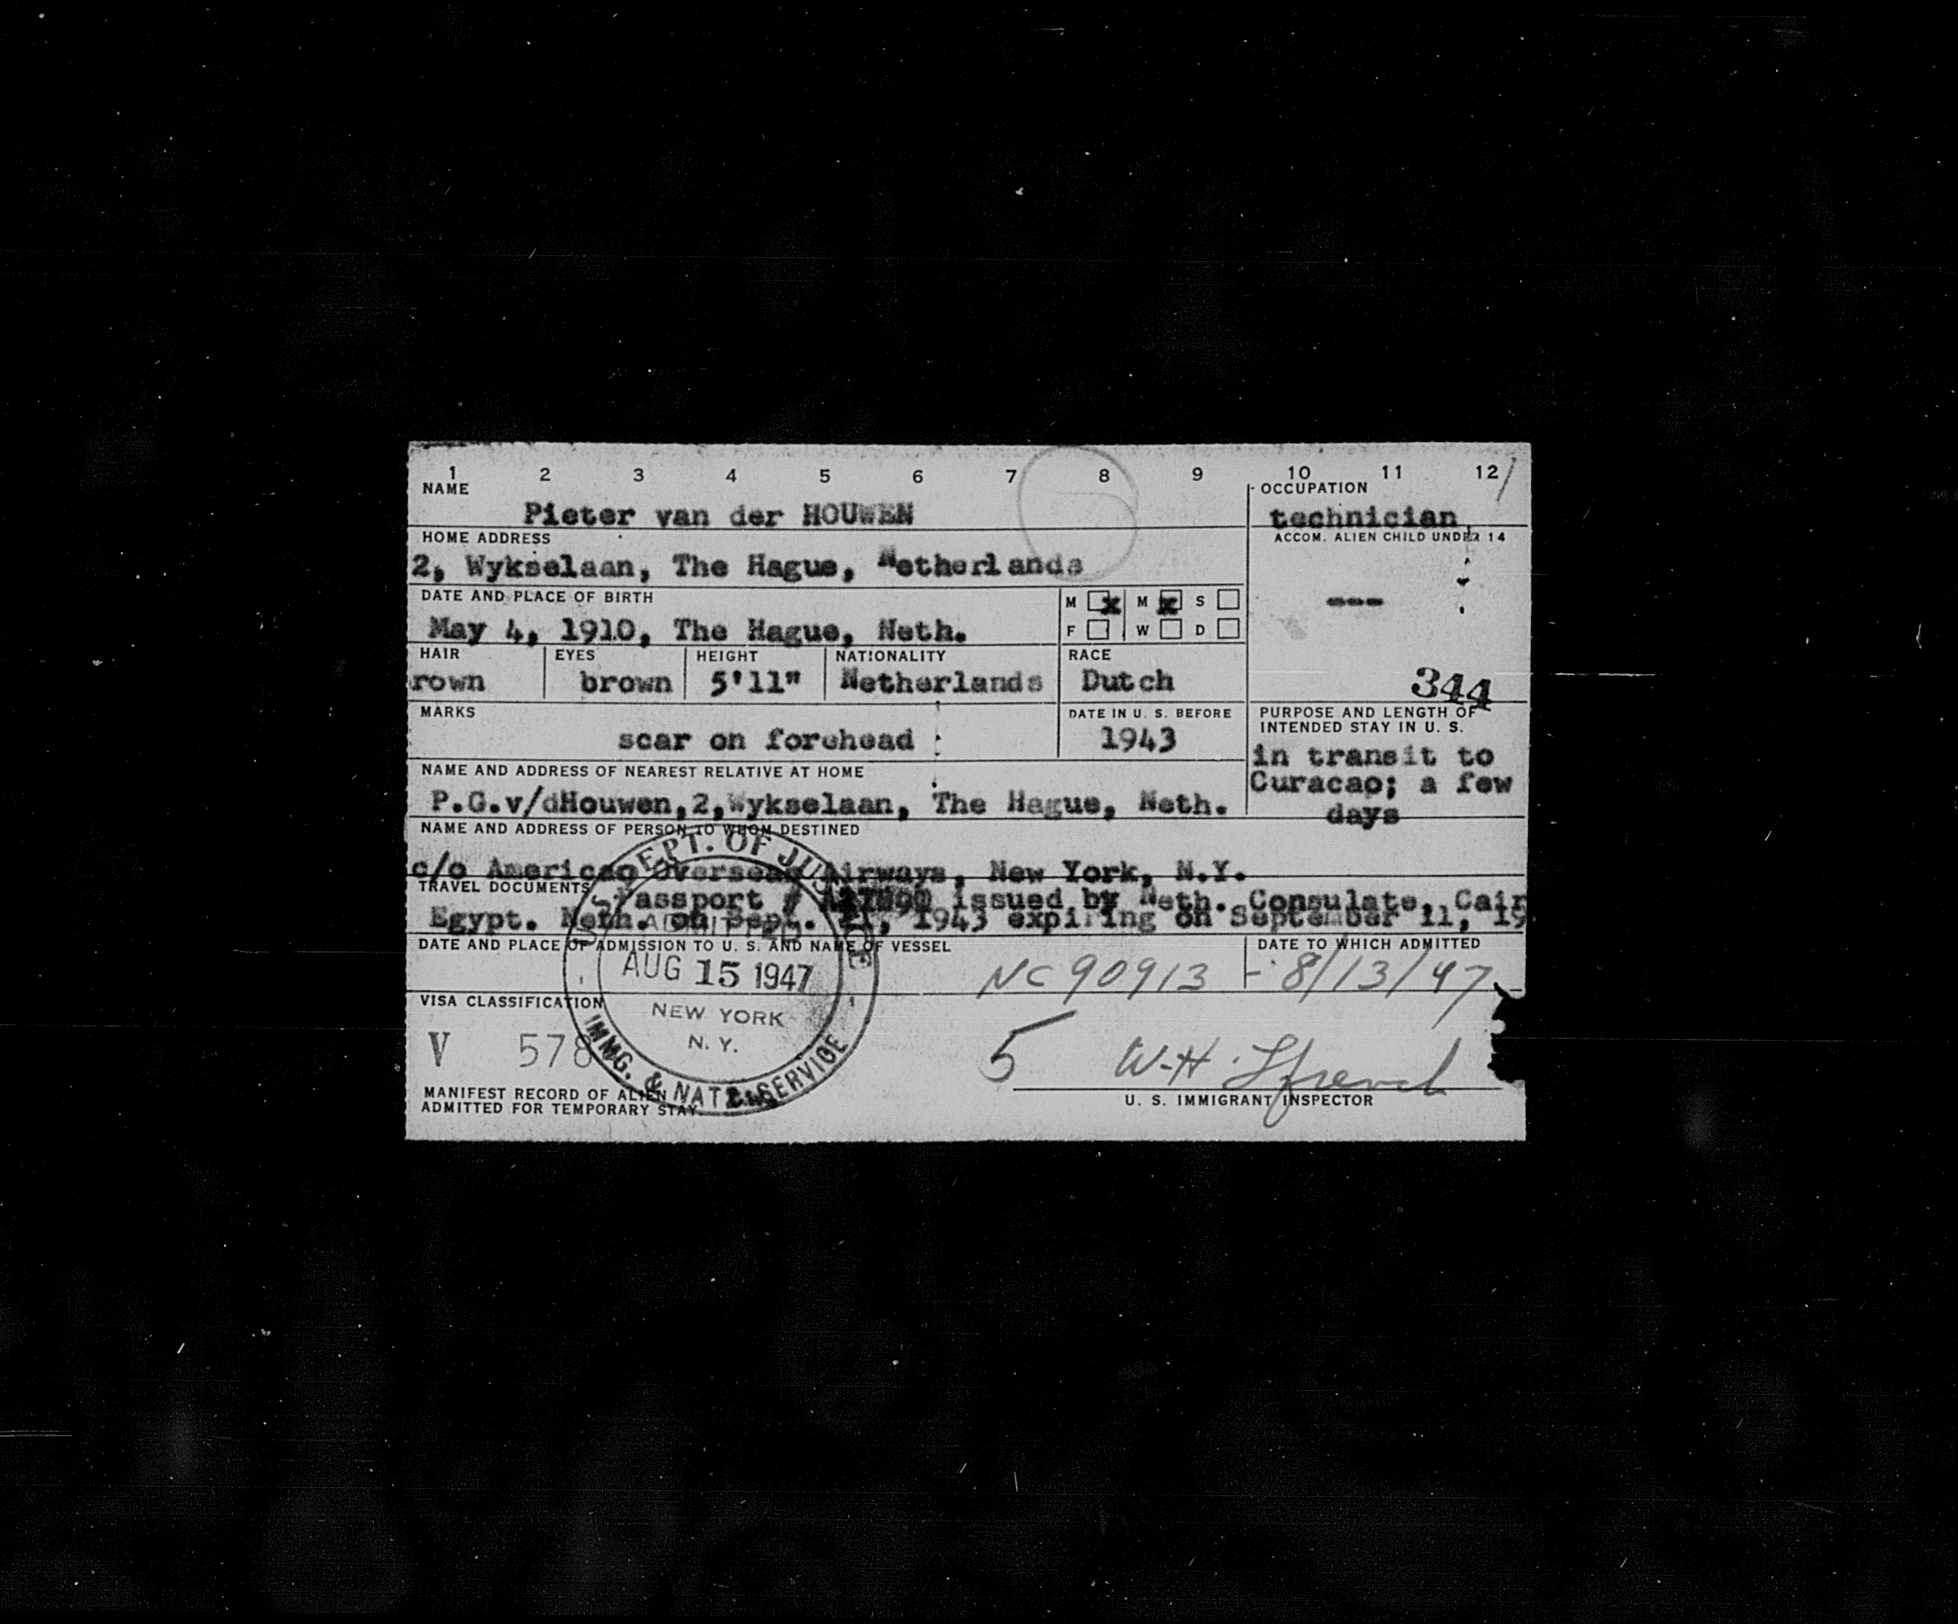 1 2 3 4 5 6 7 8 9 10 11 12
NAME
Pieter van der HOUWEN
OCCUPATION
technician
HOME ADDRESS
2, Wykselaan, The Hague, Netherlands
ACCOM. ALIEN CHILD UNDER 14
---
DATE AND PLACE OF BIRTH
May 4, 1910, The Hague, Neth.
M x M x S
F W D
HAIR EYES HEIGHT NATIONALITY RACE
rown brown 5'11" Netherlands Dutch
344
MARKS
scar on forehead
DATE IN U. S. BEFORE
1943
PURPOSE AND LENGTH OF
INTENDED STAY IN U. S.
in transit to
Curacao; a few
days
NAME AND ADDRESS OF NEAREST RELATIVE AT HOME
P.G.v/dHouwen,2,Wykselaan, The Hague, Neth.
NAME AND ADDRESS OF PERSON TO WHOM DESTINED
c/o American Overseas Airways, New York, N.Y.
TRAVEL DOCUMENTS
Passport # issued by Neth. Consulate, Cair
Egypt. Neth. on Sept. 1943 expiring on September 11, 19
DATE AND PLACE OF ADMISSION TO U. S. AND NAME OF VESSEL
NC 90913
DATE TO WHICH ADMITTED
8/13/47
U.S. DEPT. OF JUSTICE
ADMITTED
AUG 15 1947
NEW YORK
N. Y.
IMMG. & NATZ. SERVICE
VISA CLASSIFICATION
V 578
5
MANIFEST RECORD OF ALIEN
ADMITTED FOR TEMPORARY STAY
W-H
U. S. IMMIGRANT INSPECTOR